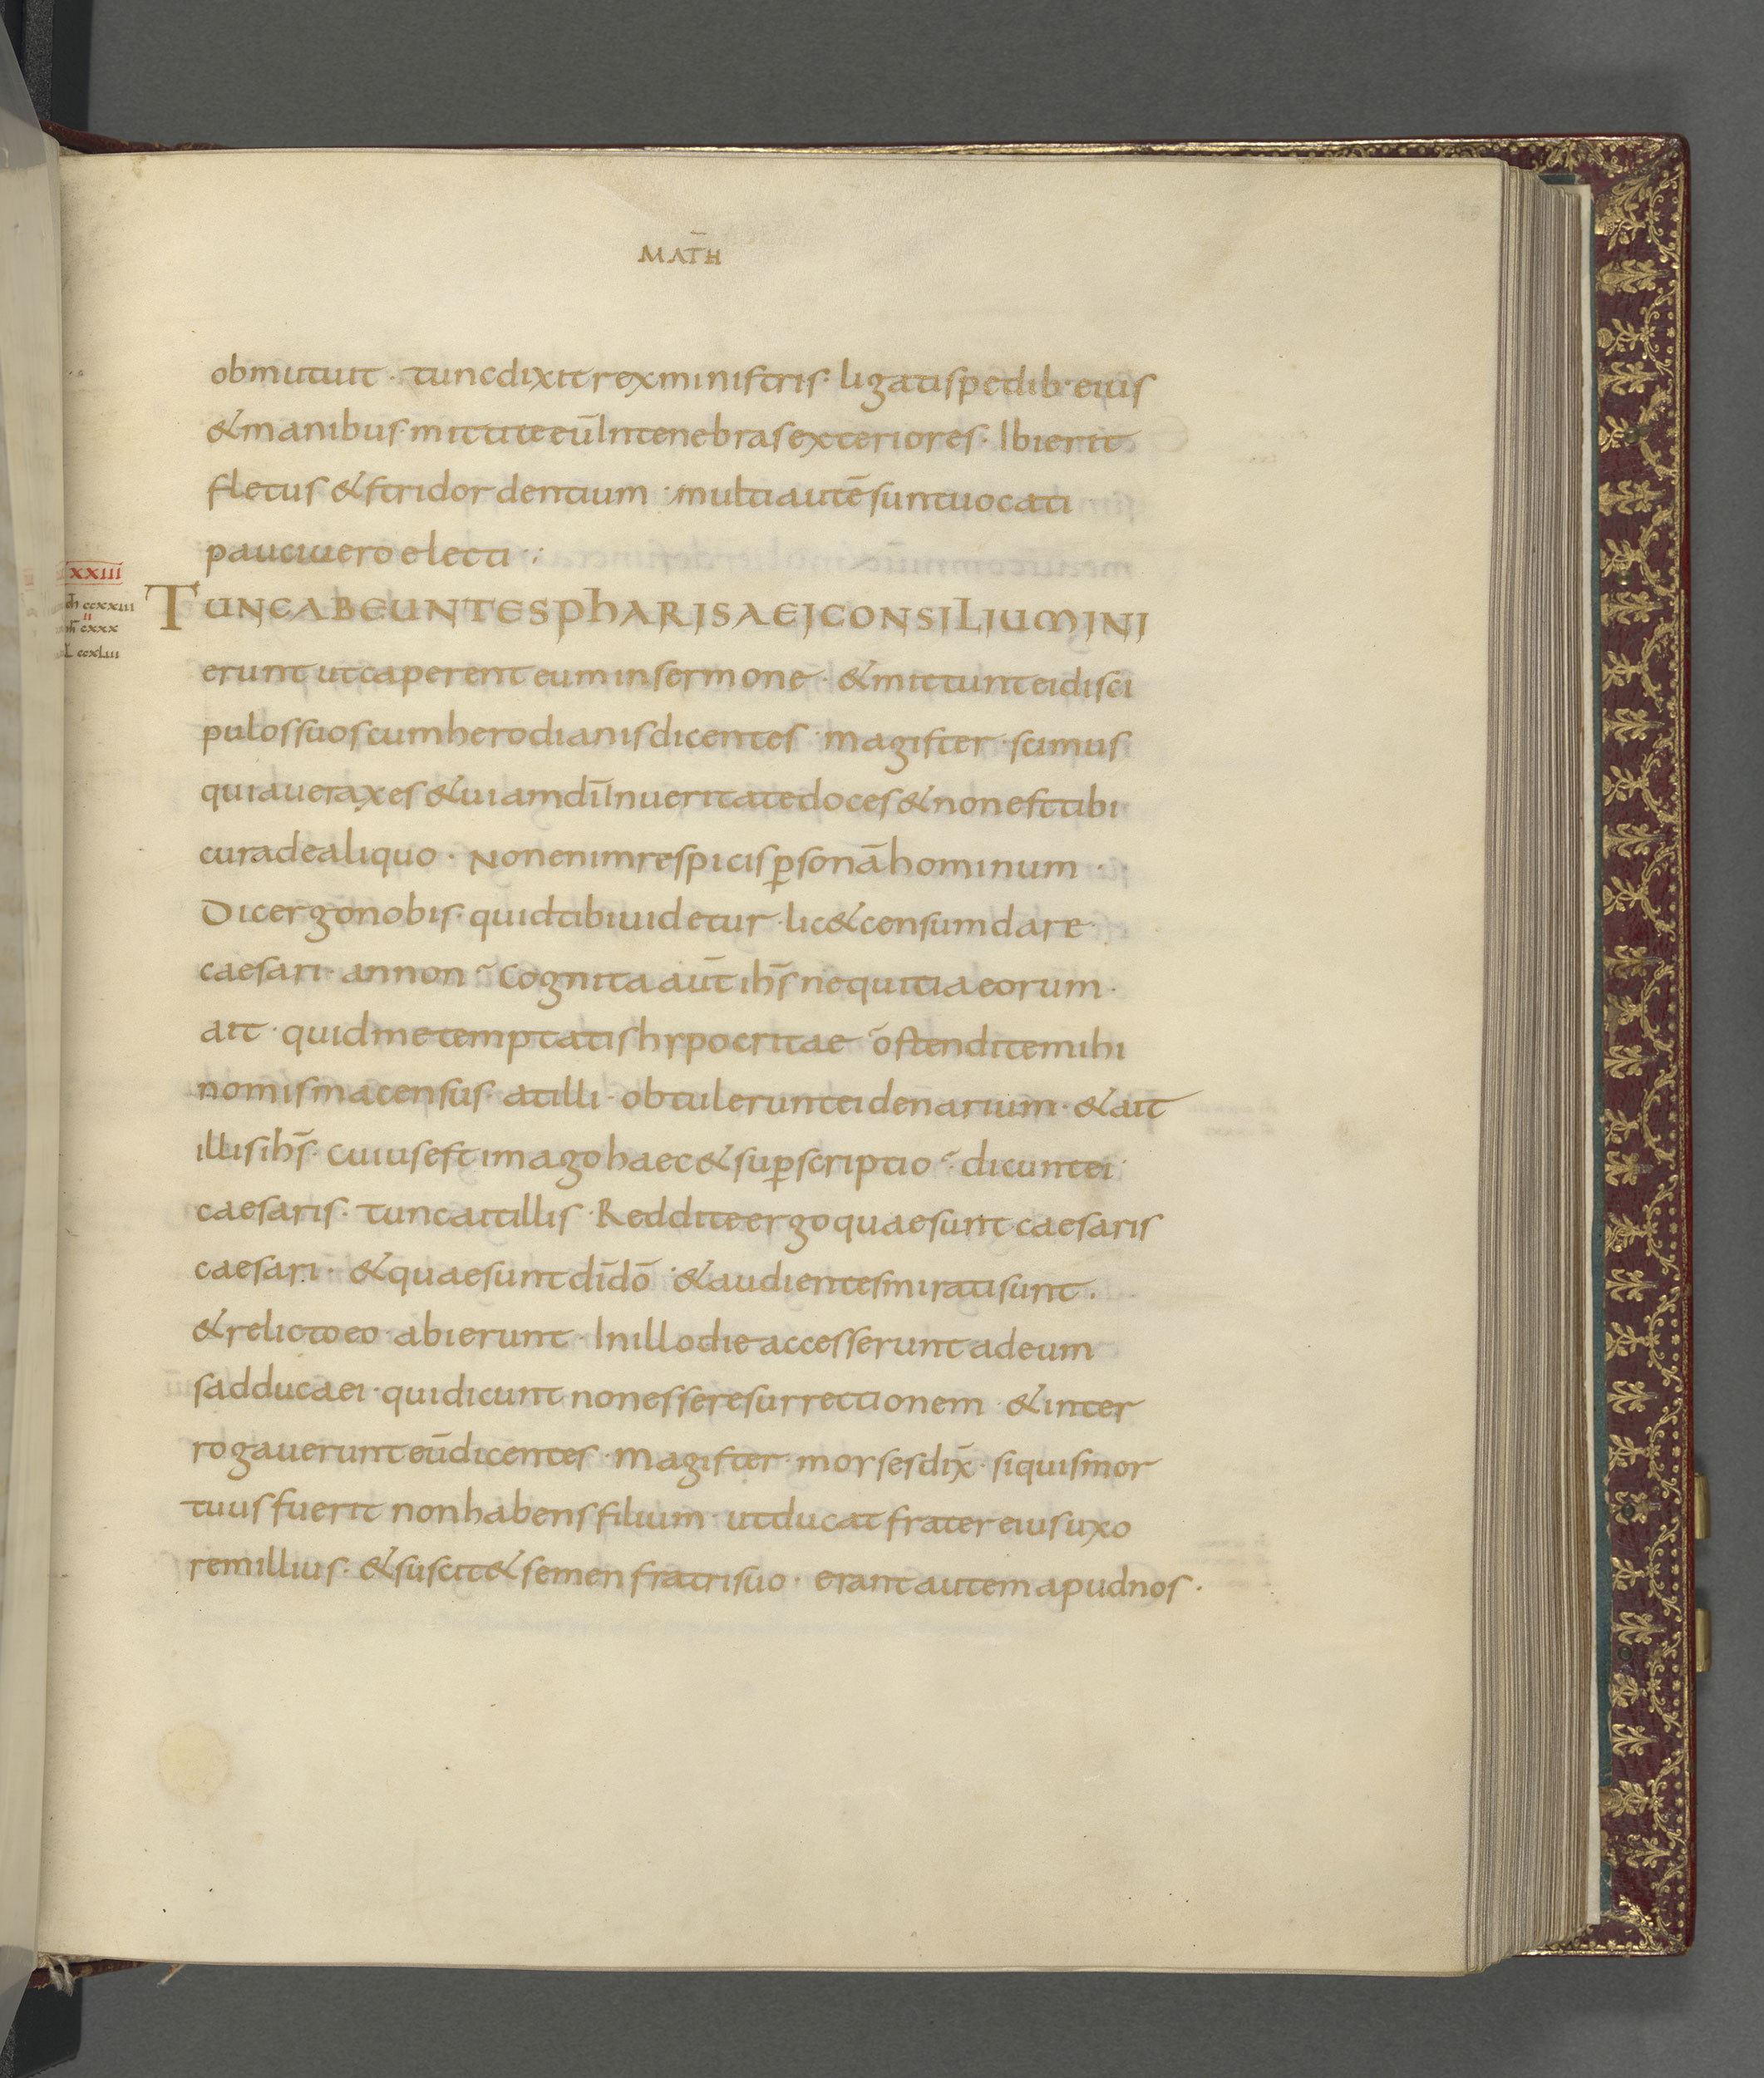 MAT̄H
obmutuit · tunc dixit rex ministris · ligatis pedib· eius
& manibus · mittite eū In tenebras exteriores · Ibi erit
fletus & stridor dentium · multi autē sunt uocati
pauci uero electi ·:
XXIII
ccxxiii
II
cxxx
ccxLiii
TUNC ABEUNTES PhARISAEI CONSILIUM INI
erunt ut caperent eum in sermone · & mittunt ei disci
pulos suos cum herodianis dicentes · magister · scimus
quia uerax es & uiam dī In ueritate doces & non est tibi
cura de aliquo · Non enim respicis p̄sonā hominum ·
Dic ergo nobis · quid tibi uidetur · lic& censum dare
caesari · an non ·̃ Cognita aūt ih̄s nequitia eorum ·
ait · quid me temptatis hypocritae ·̃ ostendite mihi
nomisma census · at illi · obtulerunt ei denarium · & ait
illis ih̄s · cuius est imago haec & sup̄scriptio ·̃ dicunt ei
caesaris · tunc ait illis · Reddite ergo quae sunt caesaris
caesari · & quae sunt dī dō · & audientes mirati sunt ·
& relicto eo · abierunt · In illo die accesserunt ad eum
sadducaei · qui dicunt non esse resurrectionem · & inter
rogauerunt eū dicentes · Magister · moyses dix̄ · si quis mor
tuus fuerit non habens filium · ut ducat frater eius uxo
rem illius · & suscit& semen fratri suo · erant autem apud nos ·